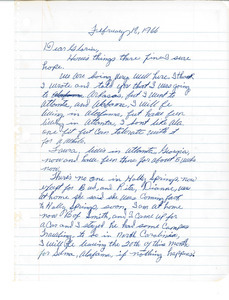 February 19, 1966
Dear
Home things there from I sure
hope.
We are doing very well here. I think
I wrote and told you that I was going
to Arkansas, but I went to
Atlanta, and Alabama, I will be
living in Alabama, but have been
living in Atlanta, I don't like
but I can tolerate with it
for a while.
I was in Atlanta, Georgia,
now and have been there for about 6 weeks
now.
There's no one in Holly Springs now
except for and Rita, Dianne, was
at home she said she was coming back
to Holly Springs soon, I am at home
now of Smith, and I came up for
a car and I stayed he had some Campus
Traveling to do in North Carolina,
I will be leaving the 20th of this month
for Selma, Alabama, if nothing happens